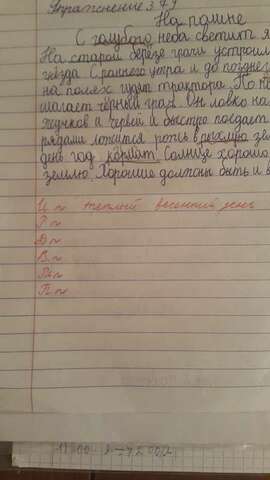 Упражнение 379
На пашне
С голубого неба светит я
На старой березе грачи устроили
гнёзда. С раннего утра и до позднег
на полях гудят трактора. По по
шагает чёрный грач. Он ловко на
жучков и червей и быстро поедает
рядами ложится рожь в рыхлую зе
день год кормит. Солнце хорошо
землю. Хорошие должны быть и в
И.~ теплый весенний день
Р.~
Д.~
В.~
Тв.~
П.~